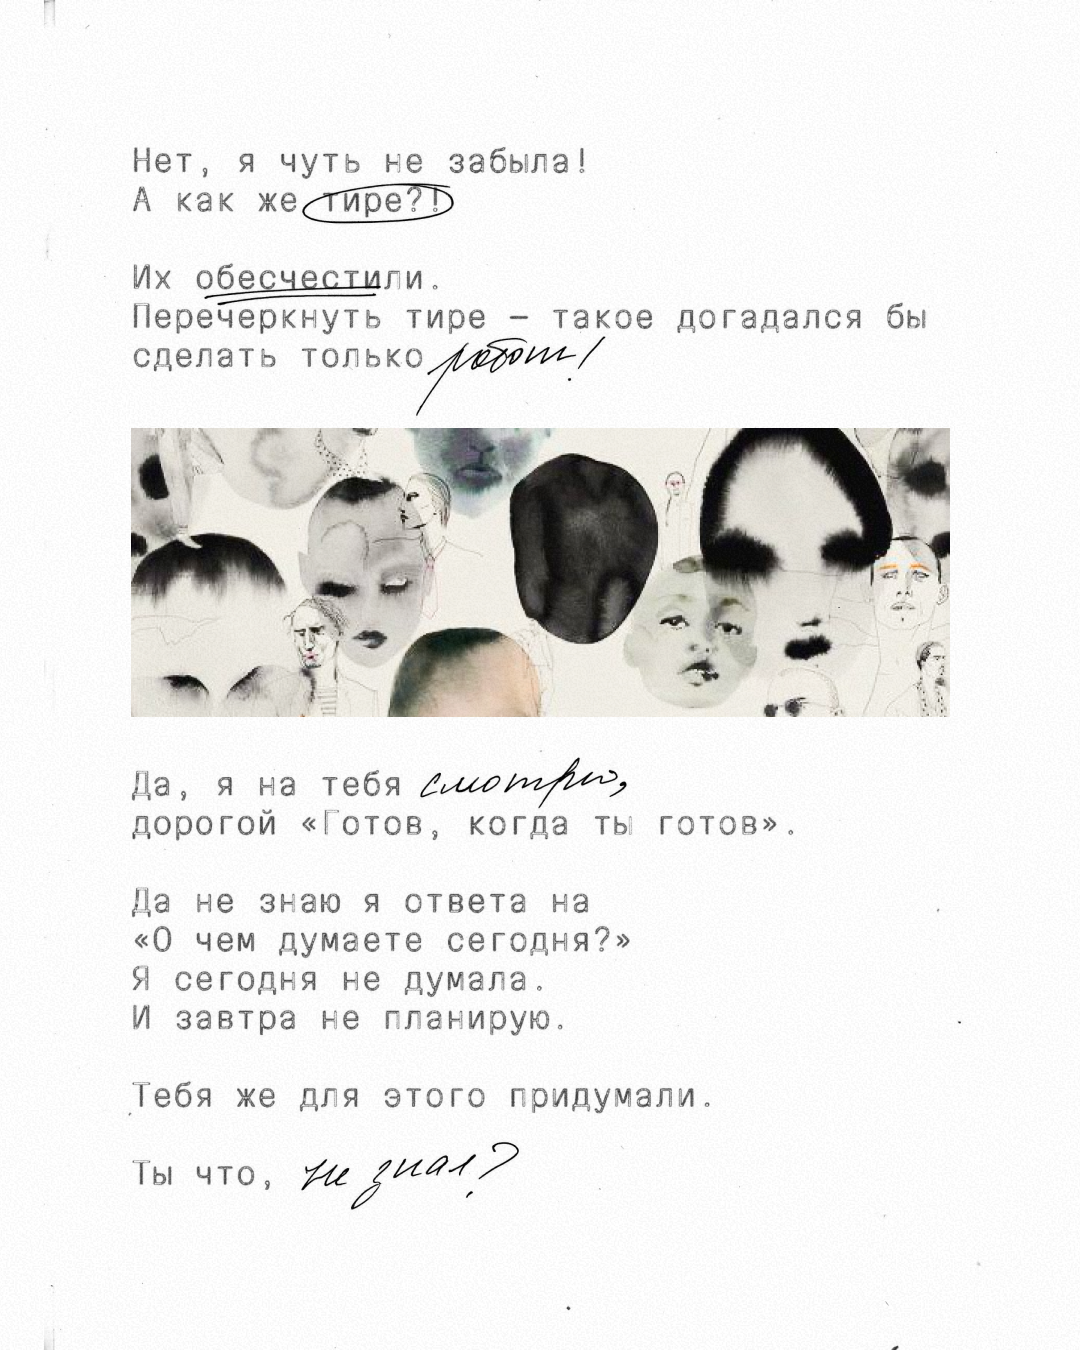 Нет, я чуть не забыла!
А как же тире?!
Их обесчестили.
Перечеркнуть тире – такое догадался бы
сделать только робот!
Да, я на тебя смотрю,
дорогой «Готов, когда ты готов».
Да не знаю я ответа на
«О чем думаете сегодня?»
Я сегодня не думала.
И завтра не планирую.
Тебя же для этого придумали.
Ты что, не знал?